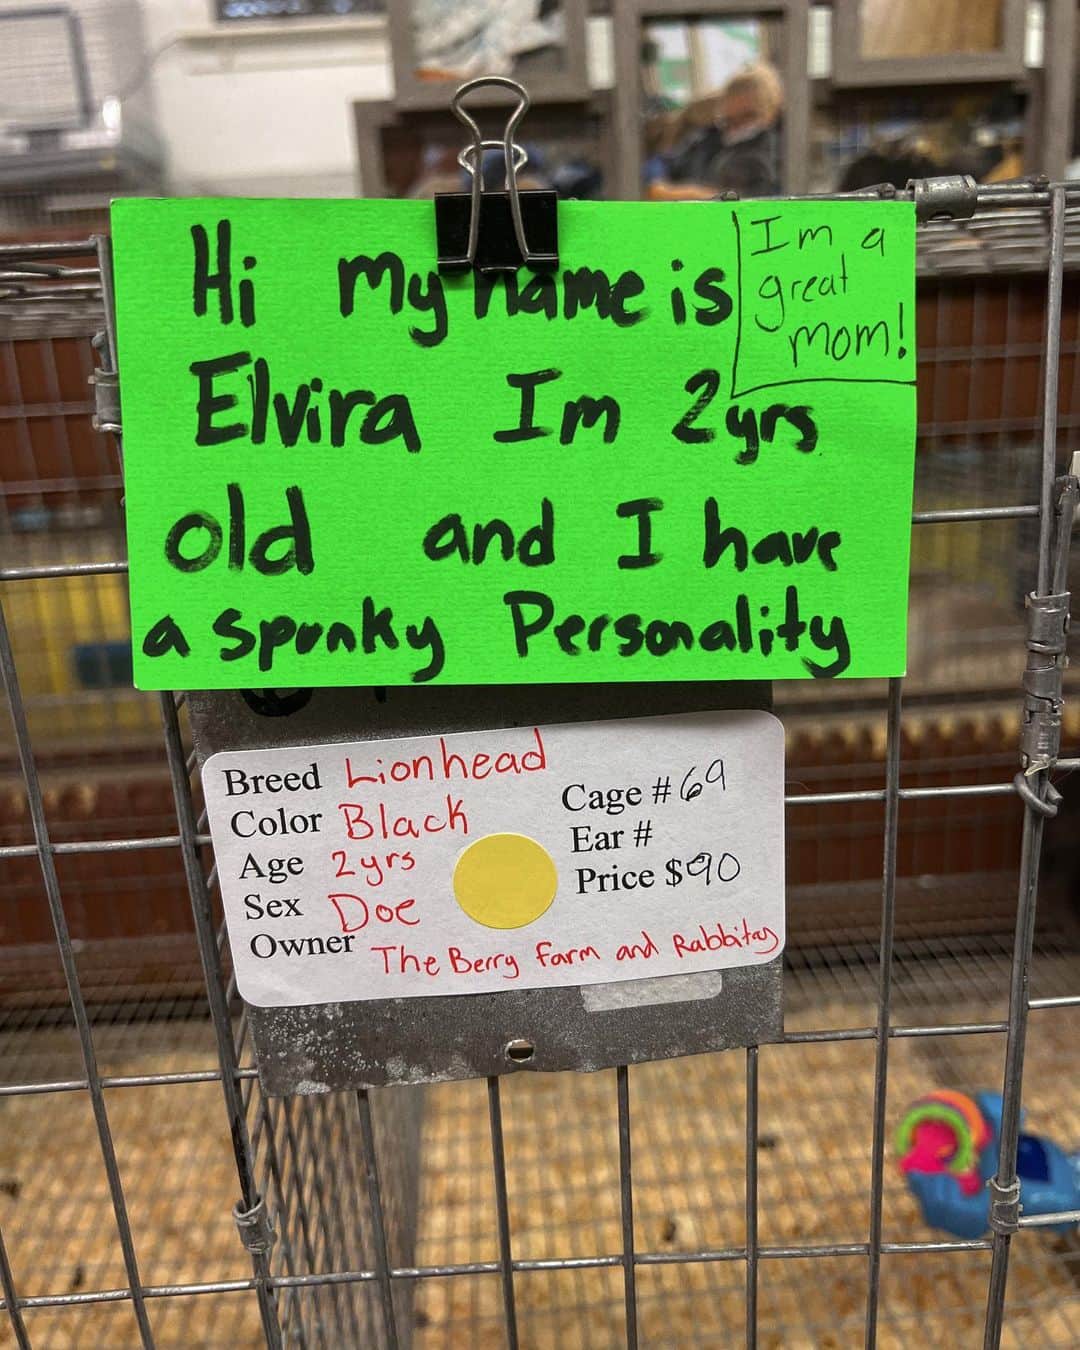 Hi my name is
Elvira Im 2yrs
old and I have
a spunky Personality
Im a
great
mom!
Breed Lionhead
Color Black
Age 2yrs
Sex Doe
Owner The Berry Farm and Rabbitry
Cage # 69
Ear #
Price $90